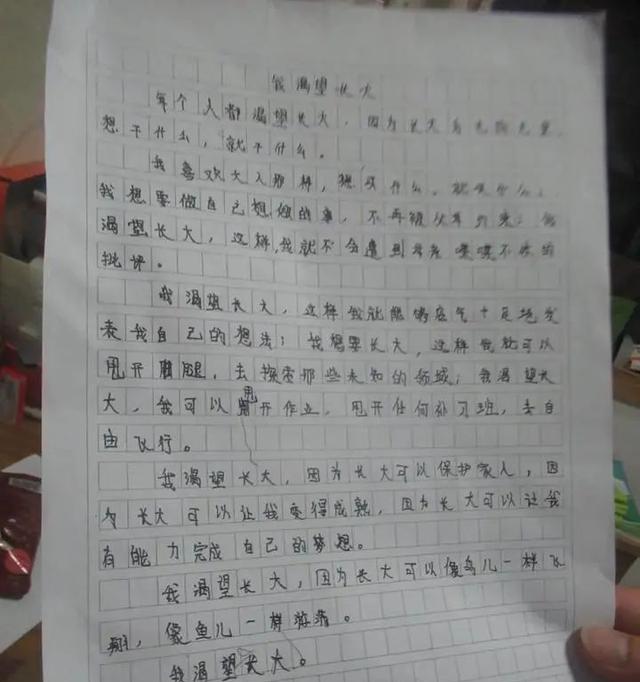 我渴望长大
每个人都渴望长大，因为长大自由自在，
想干什么，就干什么。
我喜欢大人那样，想买什么，就买什么；
我想要做自己想做的事，不再被父母约束；我
渴望长大，这样，我就不会遭到老师喋喋不休的
批评。
我渴望长大，这样我就能够底气十足地发
表我自己的想法；我想要长大，这样我就可以
甩开腿，去探索那些未知的领域；我渴望长
大，我可以甩开作业，甩开任何补习班，去自
由飞行。
我渴望长大，因为长大可以保护家人，因
为长大可以让我变得成熟，因为长大可以让我
有能力完成自己的梦想。
我渴望长大，因为长大可以像鸟儿一样飞
翔，像鱼儿一样游荡。
我渴望长大。